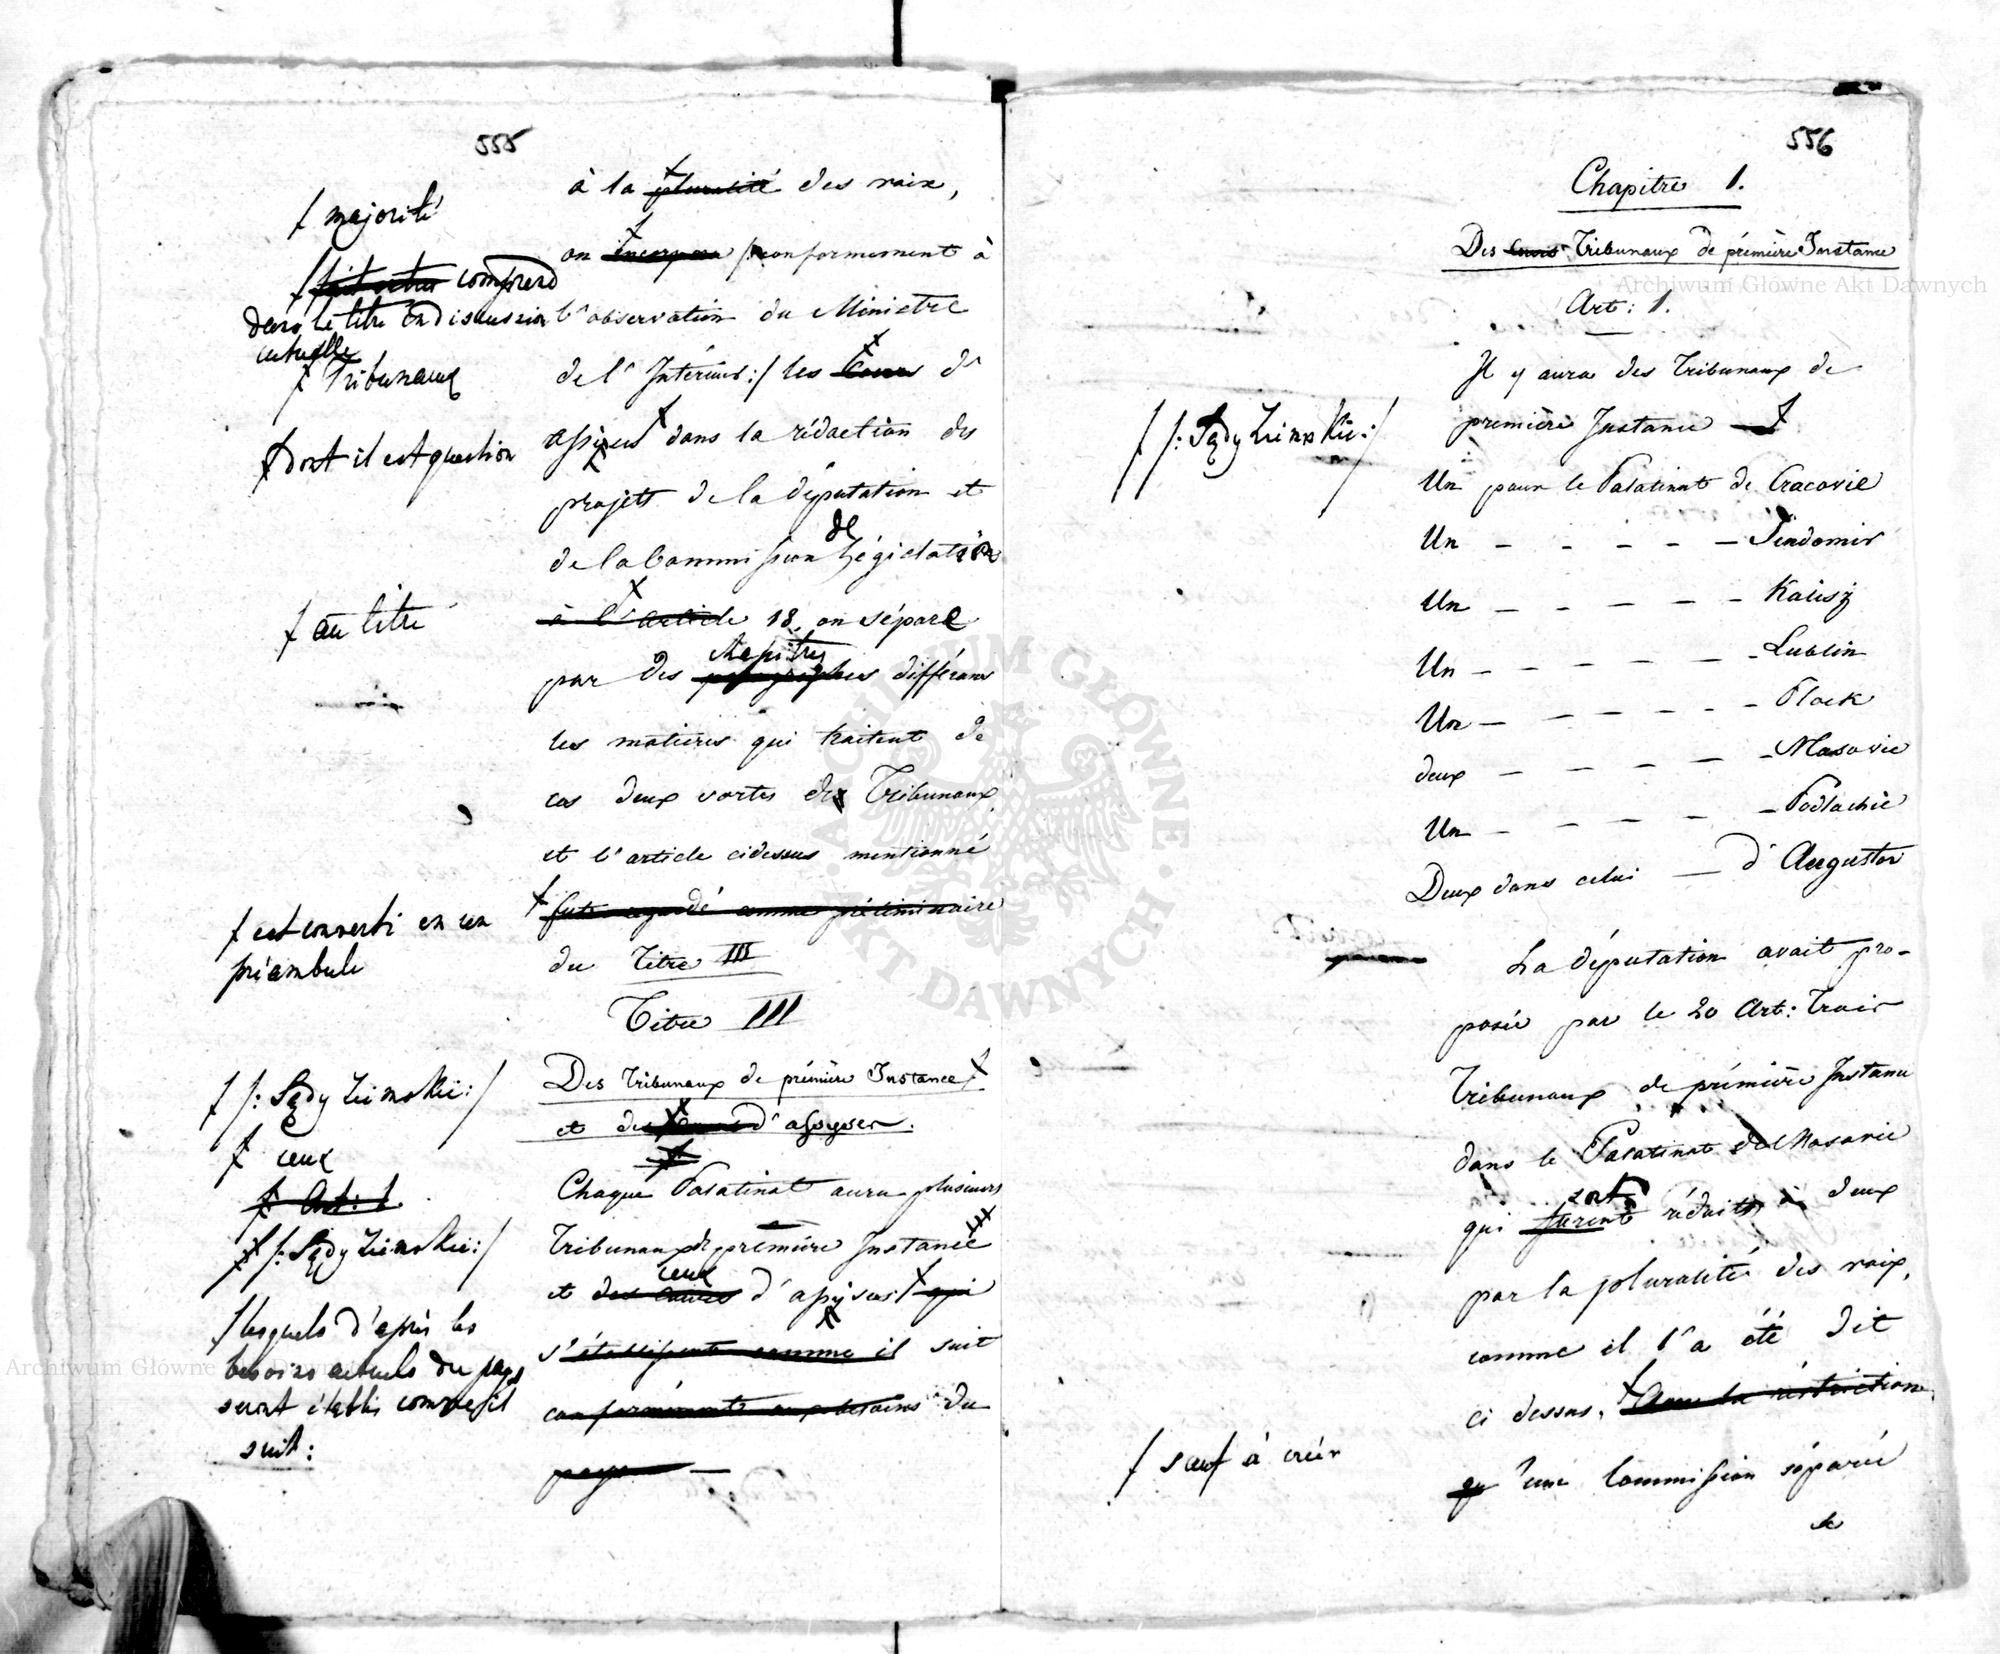 555
à la pluralité des voix,
ƒ majorité
on incorpora /: conformement à
ƒ fait entrer comprend
dans le titre en discussion
actuelle
l'observation du Ministre
de l'Intérieur :/ les Cours d'
ƒ Tribunaux
assises dans la rédaction des
ƒ dont il est question
projets de la députation et
de la Commission de Législative
à l'article 18, on sépare
ƒ au titre
chapitres
par des paragraphes différens
les matieres qui traitent de
ces deux sortes de Tribunaux,
et l'article cidessus mentionné
fut regardé comme préliminaire
ƒ est converti en un
préambule
du Titre III
Titre III
Des Tribunaux de première Instance
ƒ /: Sędy Ziemskie :/
et des Cours d'assises.
ƒ ceux
ƒ Art: 1.
Chaque Palatinat aura plusieurs
Tribunaux de première Instance
ƒ /: Sędy Ziemskie :/
ceux
et des Cours d'assises qui
s'établissent comme il suit
ƒ lesquels d'après les
besoins actuels du pays
seront établis comme il
suit:
conformément aux besoins du
pays —
556
Chapitre 1.
Des Cours Tribunaux de première Instance
Art: 1.
Il y aura des Tribunaux de
première Instance
ƒ /: Sędy Ziemskie :/
Un pour le Palatinat de Cracovie
Un — — — — — Sendomir
Un — — — — — Kalisz
Un — — — — — Lublin
Un — — — — — Plock
deux — — — — — Masovie
Un — — — — — Podlachie
Deux dans celui — d'Augustov
La députation avait pro-
posée par le 20 Art: trois
Tribunaux de première Instance
dans le Palatinat de Masovie
sont
qui furent réduits à deux
par la pluralité des voix,
comme il l'a été dit
ci dessus, avec la restriction
ƒ sauf à créer
qu'une Commission séparée
Archiwum Główne Akt Dawnych
Archiwum Główne Akt Dawnych
ARCHIWUM GŁÓWNE AKT DAWNYCH